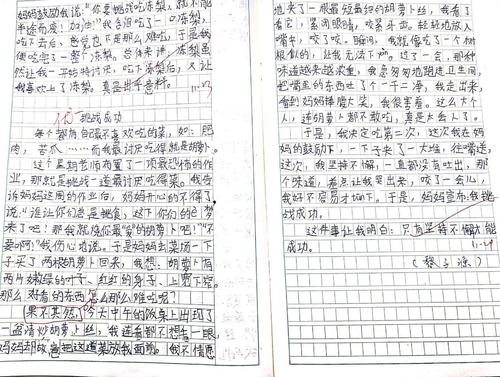 妈妈鼓励我说:“你要挑战吃冻梨,就不能
半途而废!加油!”我含泪吃了一口冻梨,
吃下去后,感觉也不是那么难吃,于是我
便吃完了一整个冻梨。总体来讲,冻梨虽
然让我一开始特讨厌,吃下冻梨后,又让
我喜欢上了冻梨,真是出乎意料。
11.23
优 挑战成功
每个都有自己不喜欢吃的菜,如:肥
肉,苦瓜……而我最讨厌吃得就是胡萝卜。
这个星期老师布置了一项最恐怖的作
业,那就是挑战一道最讨厌吃得菜。我告
诉妈妈这周的作业后,妈妈开心的不得了,
说:“谁让你们总是挑食,这下你们的噩梦
来了吧!那我就烧你最‘爱’的胡萝卜吧!”“不
要啊!”我伤心地说。于是妈妈去菜场一下
子买了两根胡萝卜回来,我想:胡萝卜有
两片嫩绿的叶子、红红的身子、上宽下窄,
那么好看的东西怎么那么难吃呢?
果不其然,今天中午的饭桌上出现了
一盆清炒胡萝卜丝,我连看都不想看一眼,
妈妈却故意把这道菜放我面前。我不情愿
地夹了一根最短最细的胡萝卜丝,我看了
看它,紧闭眼睛,咬紧牙齿。轻轻地放入
嘴中,咬了咬。瞬间,我就像吃了一个树
根似的,让我无法下咽。过了一会,那种
味道越来越浓重,我急匆匆地跑进卫生间,
把嘴里的东西吐了个一干二净,我走出来,
看到妈妈捧腹大笑,我很害羞。这么大个
人,连胡萝卜都不敢吃,真是太丢人了。
于是,我决定吃第二次,这次我在妈
妈的鼓励下,一下子夹了一大堆,往嘴送,
这次,我坚持不懈,一直都没有吐出,那
个味道,差点让我哭出来,咬了一会儿,
我好不容易才咽下。于是,妈妈宣布:我挑
战成功。
这件事让我明白:只有坚持不懈才能
成功。
11.29